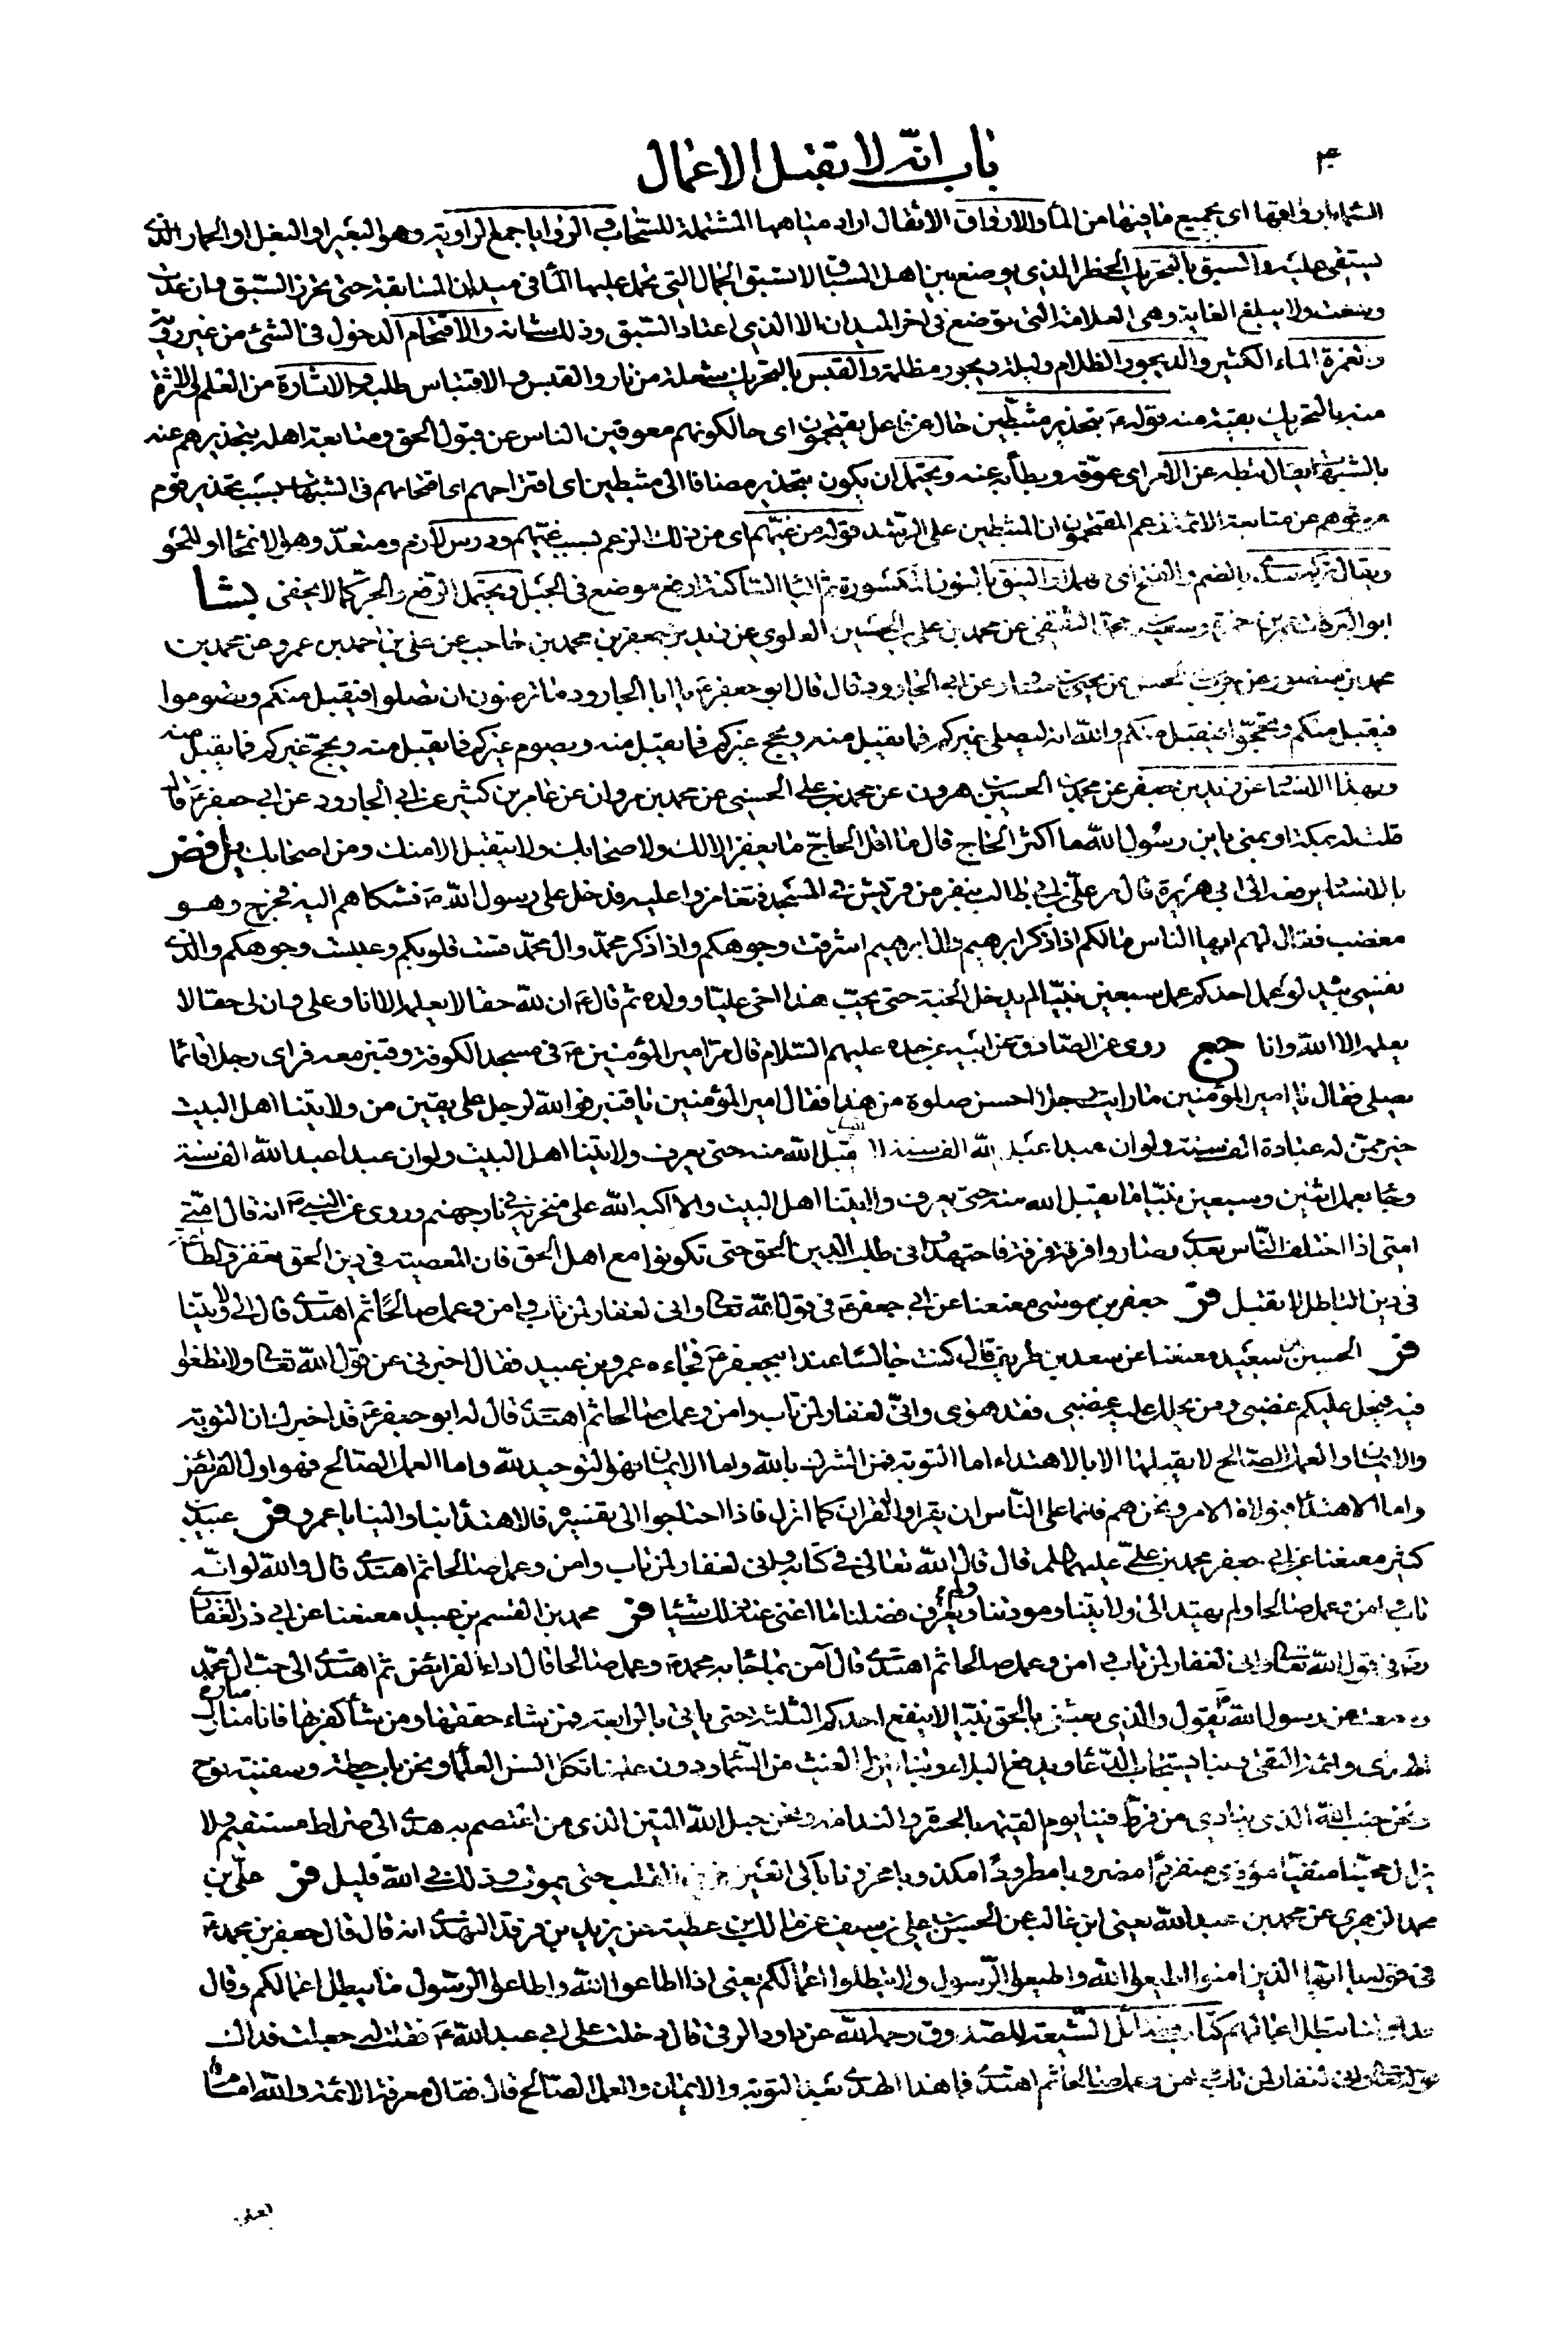 باب انه لا تقبل الاعمال
السماء بارواقها اى بجميع ما فيها من الماء والارواق الاثقال اراد مياهها المشتملة للسحاب و الروايا جمع الراوية وهو البعير او البغل او الحمار الذى
يستقى عليه والسبق بالتحريك الخطر الذى يوضع بين اهل السباق الا سبق الجمال التى تحمل عليها الماء فى ميدان المسابقة حتى يحرز السبق وان عدت
وتعبت ولا يبلغ الغاية وهى العلامة التى توضع فى اخر الميدان الا الذى اعتاد السبق وذلك شانه والاقتحام الدخول فى الشئ من غير روية
والغمرة الماء الكثير والديجور الظلام وليلة ديجور مظلمة والقبس بالتحريك شعلة من نار والقبس و الاقتباس طلبه والاثارة من العلم والاثرة
منه بالتحريك بقية منه قوله ع بتحذير مثبطين حال عن فاعل يقتحمون اى حالكونهم معوقين الناس عن قبول الحق ومتابعة اهله بتحذيرهم عنه
بالشبهات يقال ثبطه عن الامر اى عوقه وبطأ به عنه ويحتمل ان يكون بتحذير مضافا الى مثبطين اى اقتراحهم اى اقتحامهم فى الشبهات بسبب تحذير قوم
عوقوهم عن متابعة الائمة زعم المقتحمون ان المثبطين على الرشد قوله من غيهم اى من ذلك الزعم بسبب غيهم ودرس لازم ومتعد وهو الانمحاء او المحو
ويقال تركه سدى بالضم والفتح اى مهملا والنيق بالنون المكسورة ثم الياء الساكنة ارفع موضع فى الجبل ويحتمل الرفع والجر كما لا يخفى بشا
ابو البركات عمر بن حمزة وسعيد بن محمد الثقفى عن محمد بن على بن الحسين العلوى عن زيد بن جعفر بن محمد بن حاجب عن على بن احمد بن عمرو عن محمد بن
محمد بن منصور عن حرب بن الحسن عن يحيى بن مساور عن ابى الجارود قال قال ابو جعفر ع يا ابا الجارود ما ترضون ان تصلوا فيقبل منكم وتصوموا
فيقبل منكم وتحجوا فيقبل منكم والله انه ليصلى غيركم فما يقبل منه ويحج غيركم فما يقبل منه ويصوم غيركم فما يقبل منه ويحج غيركم فما يقبل منه
وبهذا الاسناد عن زيد بن جعفر عن محمد بن الحسين بن هرون عن محمد بن على الحسنى عن محمد بن مروان عن عامر بن كثير عن ابى الجارود عن ابى جعفر ع قال
قلت له بمكة او بمنى يا ابن رسول الله ما اكثر الحاج قال ما اقل الحاج ما يغفر الا لك ولاصحابك ولا يتقبل الا منك ومن اصحابك يل فض
بالاسناد يرفعه الى ابى هريرة قال مر على بن ابى طالب بنفر من قريش فى المسجد فتغامزوا عليه فدخل على رسول الله ص فشكاهم اليه فخرج وهو
مغضب فقال لهم ايها الناس ما لكم اذا ذكر ابرهيم وال ابرهيم اشرقت وجوهكم واذا ذكر محمد وال محمد قست قلوبكم وعبست وجوهكم والذى
نفسى بيده لو عمل احدكم عمل سبعين نبيا لم يدخل الجنة حتى يحب هذا اخى عليا وولده ثم قال ع ان لله حقا لا يعلمه الا انا وعلى وان لى حقا لا
يعلمه الا الله وانا جع روى عن الصادق عن ابيه عن جده عليهم السلام قال مر امير المؤمنين ع فى مسجد الكوفة وقنبر معه فراى رجلا قائما
يصلى فقال يا امير المؤمنين ما رايت رجلا احسن صلوة من هذا فقال امير المؤمنين يا قنبر فو الله لرجل على يقين من ولايتنا اهل البيت
خير ممن له عبادة الف سنة ولو ان عبدا عبد الله الف سنة لا يقبل الله منه حتى يعرف ولايتنا اهل البيت ولو ان عبدا عبد الله الف سنة
وجاء بعمل اثنين وسبعين نبيا ما يقبل الله منه حتى يعرف ولايتنا اهل البيت والا اكبه الله على منخريه فى نار جهنم وروى عن النبى ص انه قال امتى
امتى اذا اختلف الناس بعدى وصاروا فرقة فرقة فاجتهدوا فى طلب الدين الحق حتى تكونوا مع اهل الحق فان المعصية فى دين الحق تغفر والطاعة
فى دين الباطل لا تقبل فر جعفر بن موسى معنعنا عن ابى جعفر ع فى قول الله تعالى وانى لغفار لمن تاب وامن وعمل صالحا ثم اهتدى قال الى ولايتنا
فر الحسين بن سعيد معنعنا عن سعد بن طريف قال كنت جالسا عند ابيجعفر ع فجاءه عمرو بن عبيد فقال اخبرنى عن قول الله تعالى ولا تطغوا
فيه فيحل عليكم غضبى ومن يحلل عليه غضبى فقد هوى وانى لغفار لمن تاب وامن وعمل صالحا ثم اهتدى قال له ابو جعفر ع قد اخبرك ان التوبة
والايمان والعمل الصالح لا يقبلها الا بالاهتداء اما التوبة فمن الشرك بالله واما الايمان فهو التوحيد لله واما العمل الصالح فهو اداء الفرائض
واما الاهتداء فبولاة الامر ونحن هم فانما على الناس ان يقراوا القران كما انزل فاذا احتاجوا الى تفسيره فالاهتداء بنا والينا يا عمرو فر عبيد بن
كثير معنعنا عن ابى جعفر محمد بن على عليهما السلم قال قال الله تعالى فى كتابه وانى لغفار لمن تاب وامن وعمل صالحا ثم اهتدى قال والله لو انه
تاب وامن وعمل صالحا ولم يهتد الى ولايتنا ومودتنا ولم يعرف فضلنا ما اغنى عنه ذلك شيئا فر محمد بن القسم بن عبيد معنعنا عن ابى ذر الغفارى
رض فى قول الله تعالى وانى لغفار لمن تاب وامن وعمل صالحا ثم اهتدى قال آمن بما جاء به محمد ص وعمل صالحا قال اداء الفرائض ثم اهتدى الى حب ال محمد
وسمعت رسول الله ص يقول والذى بعثنى بالحق نبيا لا ينفع احدكم الثلثة حتى ياتى بالرابعة فمن شاء حققها ومن شاء كفر بها فانا منازل
الهدى وائمة التقى وبنا يستجاب الدعاء ويدفع البلاء وبنا ينزل الغيث من السماء ودون علمنا تكل السن العلماء ونحن باب حطة وسفينة نوح
ونحن جنب الله الذى ينادى من فرط فينا يوم القيمة بالحسرة والندامة ونحن حبل الله المتين الذى من اعتصم به هدى الى صراط مستقيم ولا
يزال محبنا منفيا مؤذى منفردا مضروبا مطرودا مكذوبا محزونا باكى العين حزين القلب حتى يموت وذلك فى الله قليل فر على بن
محمد الزهرى عن محمد بن عبد الله يعنى ابن غالب عن الحسن بن على بن سيف عن مالك بن عطية عن يزيد بن فرقد النهدى انه قال قال جعفر بن محمد ع
فى قوله يا ايها الذين امنوا اطيعوا الله واطيعوا الرسول ولا تبطلوا اعمالكم يعنى اذا اطاعوا الله واطاعوا الرسول ما يبطل اعمالكم وقال
عداوتنا تبطل اعمالهم كتاب فضائل الشيعة للصدوق رحمه الله عن داود الرقى قال دخلت على ابى عبد الله ع فقلت له جعلت فداك
قوله تعالى وانى لغفار لمن تاب وامن وعمل صالحا ثم اهتدى فما هذا الهدى بعد التوبة والايمان والعمل الصالح قال فقال معرفة الائمة والله امام